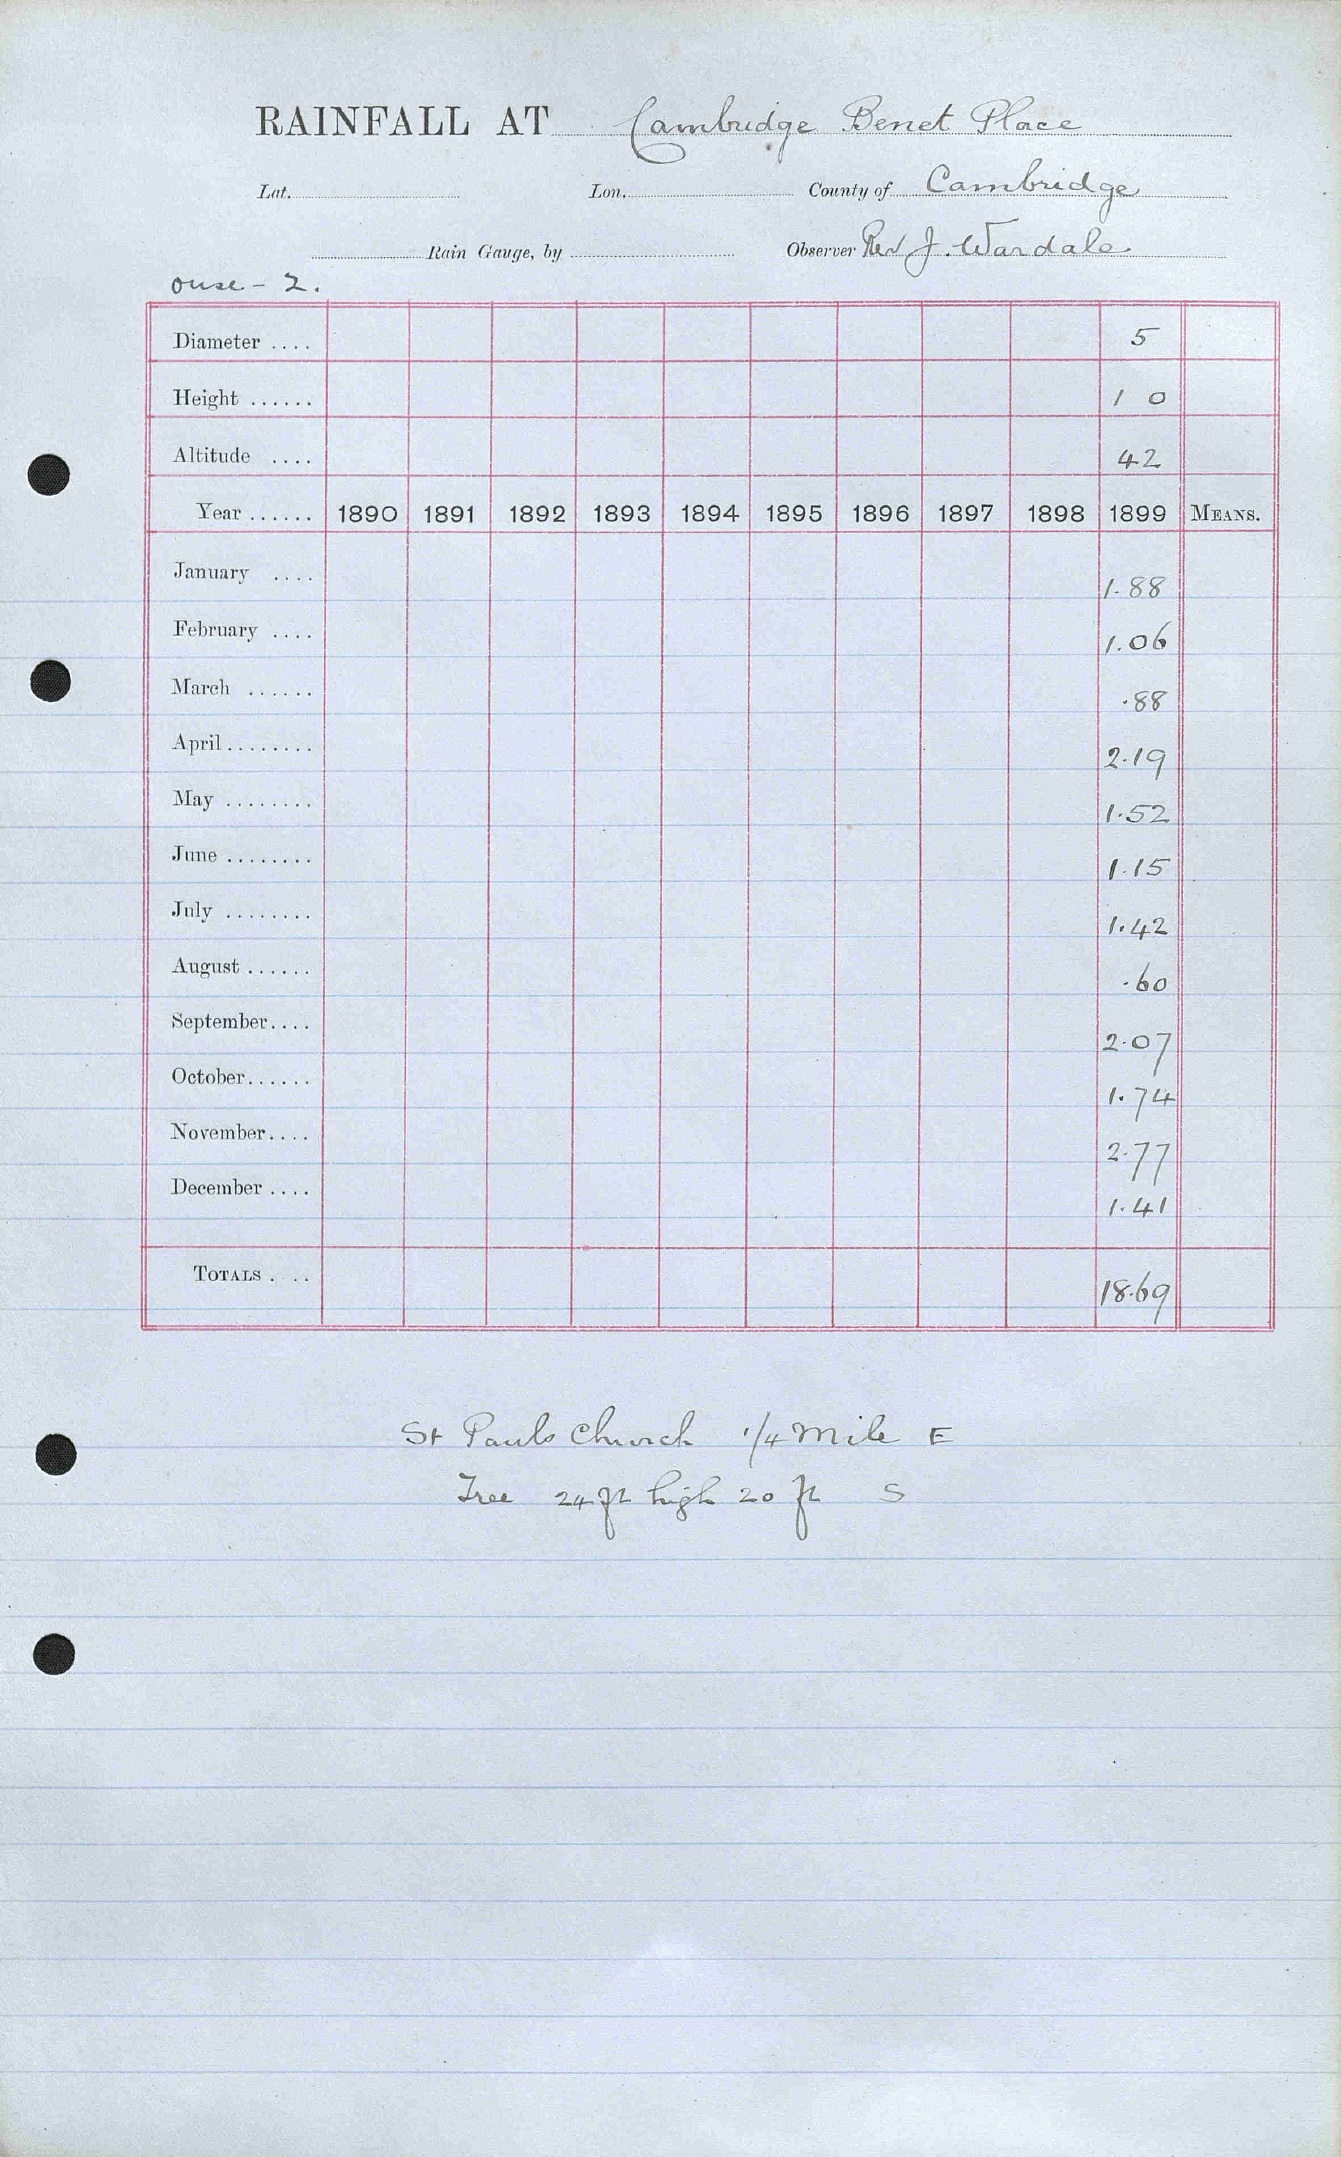 RAINFALL AT Cambridge Benet Place
Lat. Lon. County of Cambridge
Rain Gauge, by Observer Rev J. Wardale
ouse - 2.
Diameter .... 5
Height ...... 1 0
Altitude .... 42
Year ...... 1890 1891 1892 1893 1894 1895 1896 1897 1898 1899 MEANS.
January .... 1.88
February .... 1.06
March ...... .88
April ........ 2.19
May ........ 1.52
June ........ 1.15
July ........ 1.42
August ...... .60
September.... 2.07
October...... 1.74
November.... 2.77
December .... 1.41
TOTALS . .. 18.69
St Pauls Church 1/4 mile E
Tree 24 ft high 20 ft S